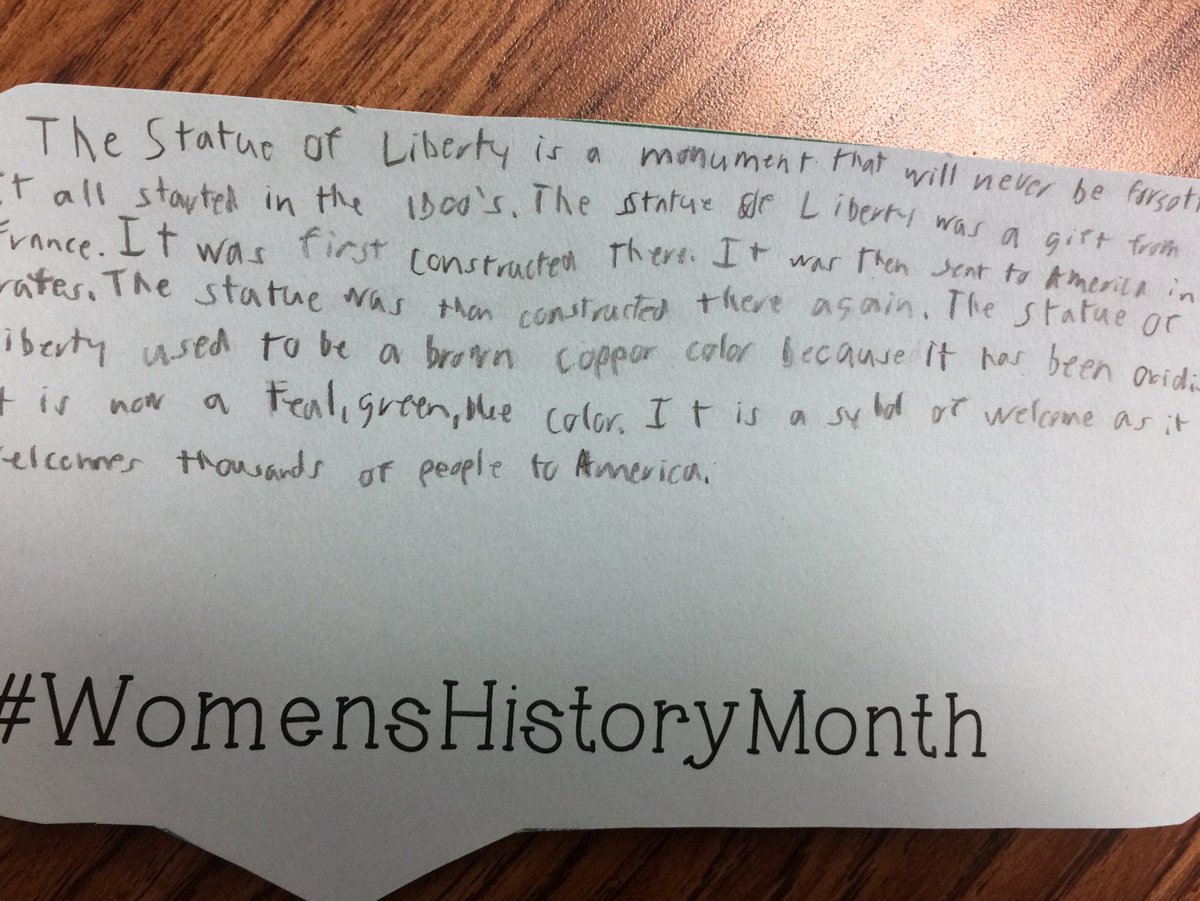 The Statue of Liberty is a monument that will never be forgott
It all started in the 1800's. The statue of Liberty was a gift from
France. It was first constructed there. It was then sent to America in
rates. The statue was then constructed there again. The statue of
iberty used to be a brown coppar color because it has been oxidi
t is now a teal, green, blue color. It is a sybol of welcome as it
elcomes thousands of people to America.
#WomensHistoryMonth